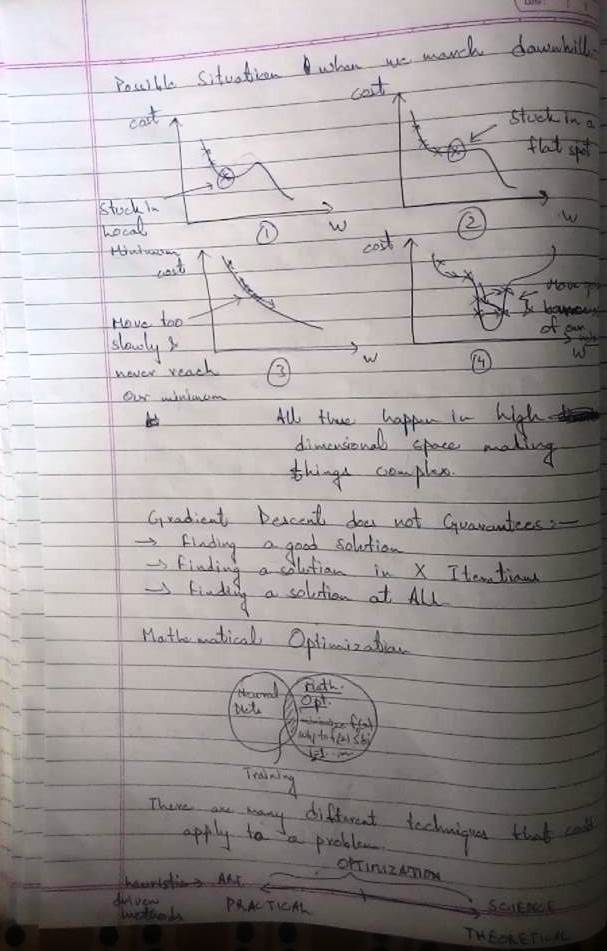 Possible Situation when we march downhill
cost
Stuck in
Local
Minimum
W
1
cost
Stuck in a
flat spot
W
2
cost
Move too
slowly &
never reach
our minimum
W
3
cost
Move
of our
W
4
All these happen in high
dimensional space making
things complex.
Gradient Descent does not Guarantees:-
→ Finding a good solution
→ Finding a solution in X Iterations
→ Finding a solution at ALL
Mathematical Optimization
Neural
Nets
Math.
Opt.
minimize f(x)
Training
There are many different techniques that could
apply to a problem.
OPTIMIZATION
heuristic → ART
driven
methods
PRACTICAL
SCIENCE
THEORETICAL